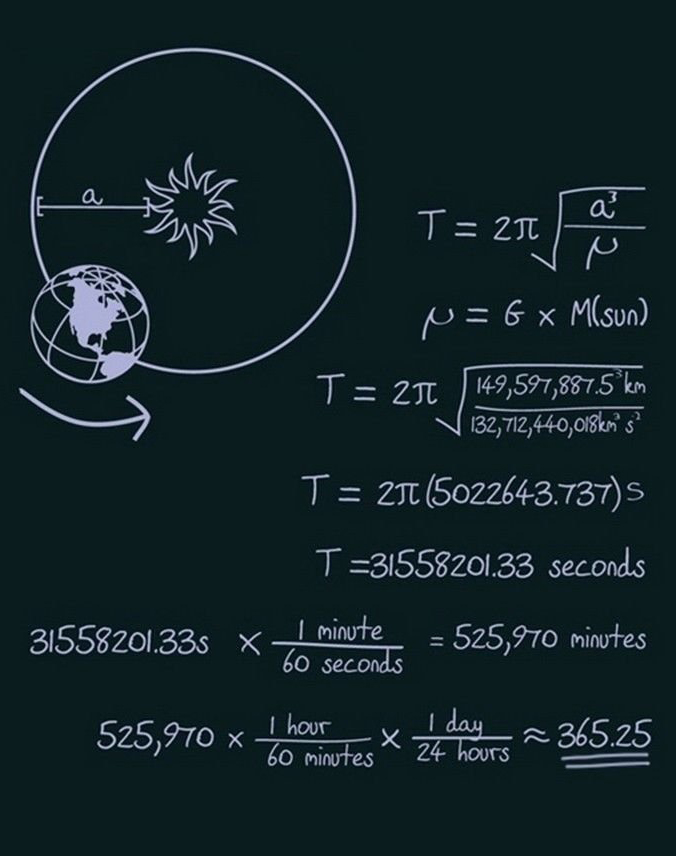 a
T = 2π √(a³/μ)
μ = G x M(sun)
T = 2π √(149,597,887.5³km/132,712,440,018km³ s²)
T = 2π(5022643.737)s
T =31558201.33 seconds
31558201.33s x 1 minute/60 seconds = 525,970 minutes
525,970 x 1 hour/60 minutes x 1 day/24 hours ≈ 365.25